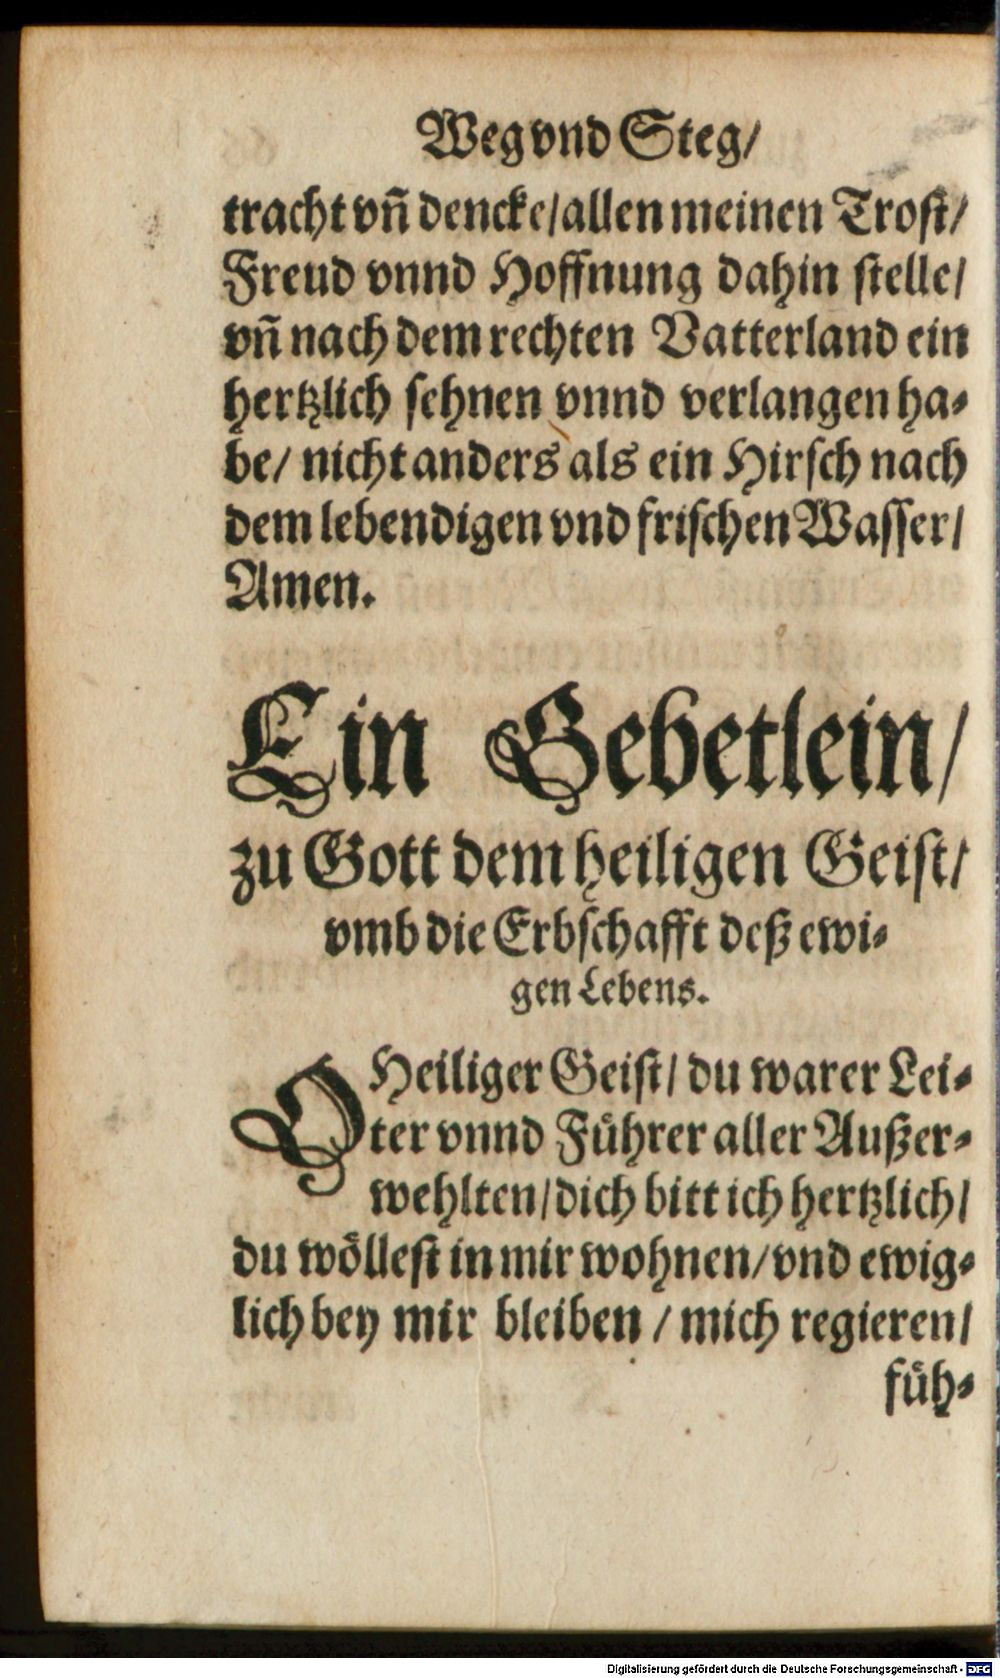 Weg vnd Steg/
tracht vñ dencke/allen meinen Trost/
Freud vnnd Hoffnung dahin stelle/
vñ nach dem rechten Vatterland ein
hertzlich sehnen vnnd verlangen ha-
be/ nicht anders als ein Hirsch nach
dem lebendigen vnd frischen Wasser/
Amen.
Ein Gebetlein/
zu Gott dem heiligen Geist/
vmb die Erbschafft deß ewi-
gen Lebens.
O Heiliger Geist/ du warer Lei-
ter vnnd Führer aller Außer-
wehlten/dich bitt ich hertzlich/
du wöllest in mir wohnen/vnd ewig-
lich bey mir bleiben / mich regieren/
füh-
Digitalisierung gefördert durch die Deutsche Forschungsgemeinschaft - DFG